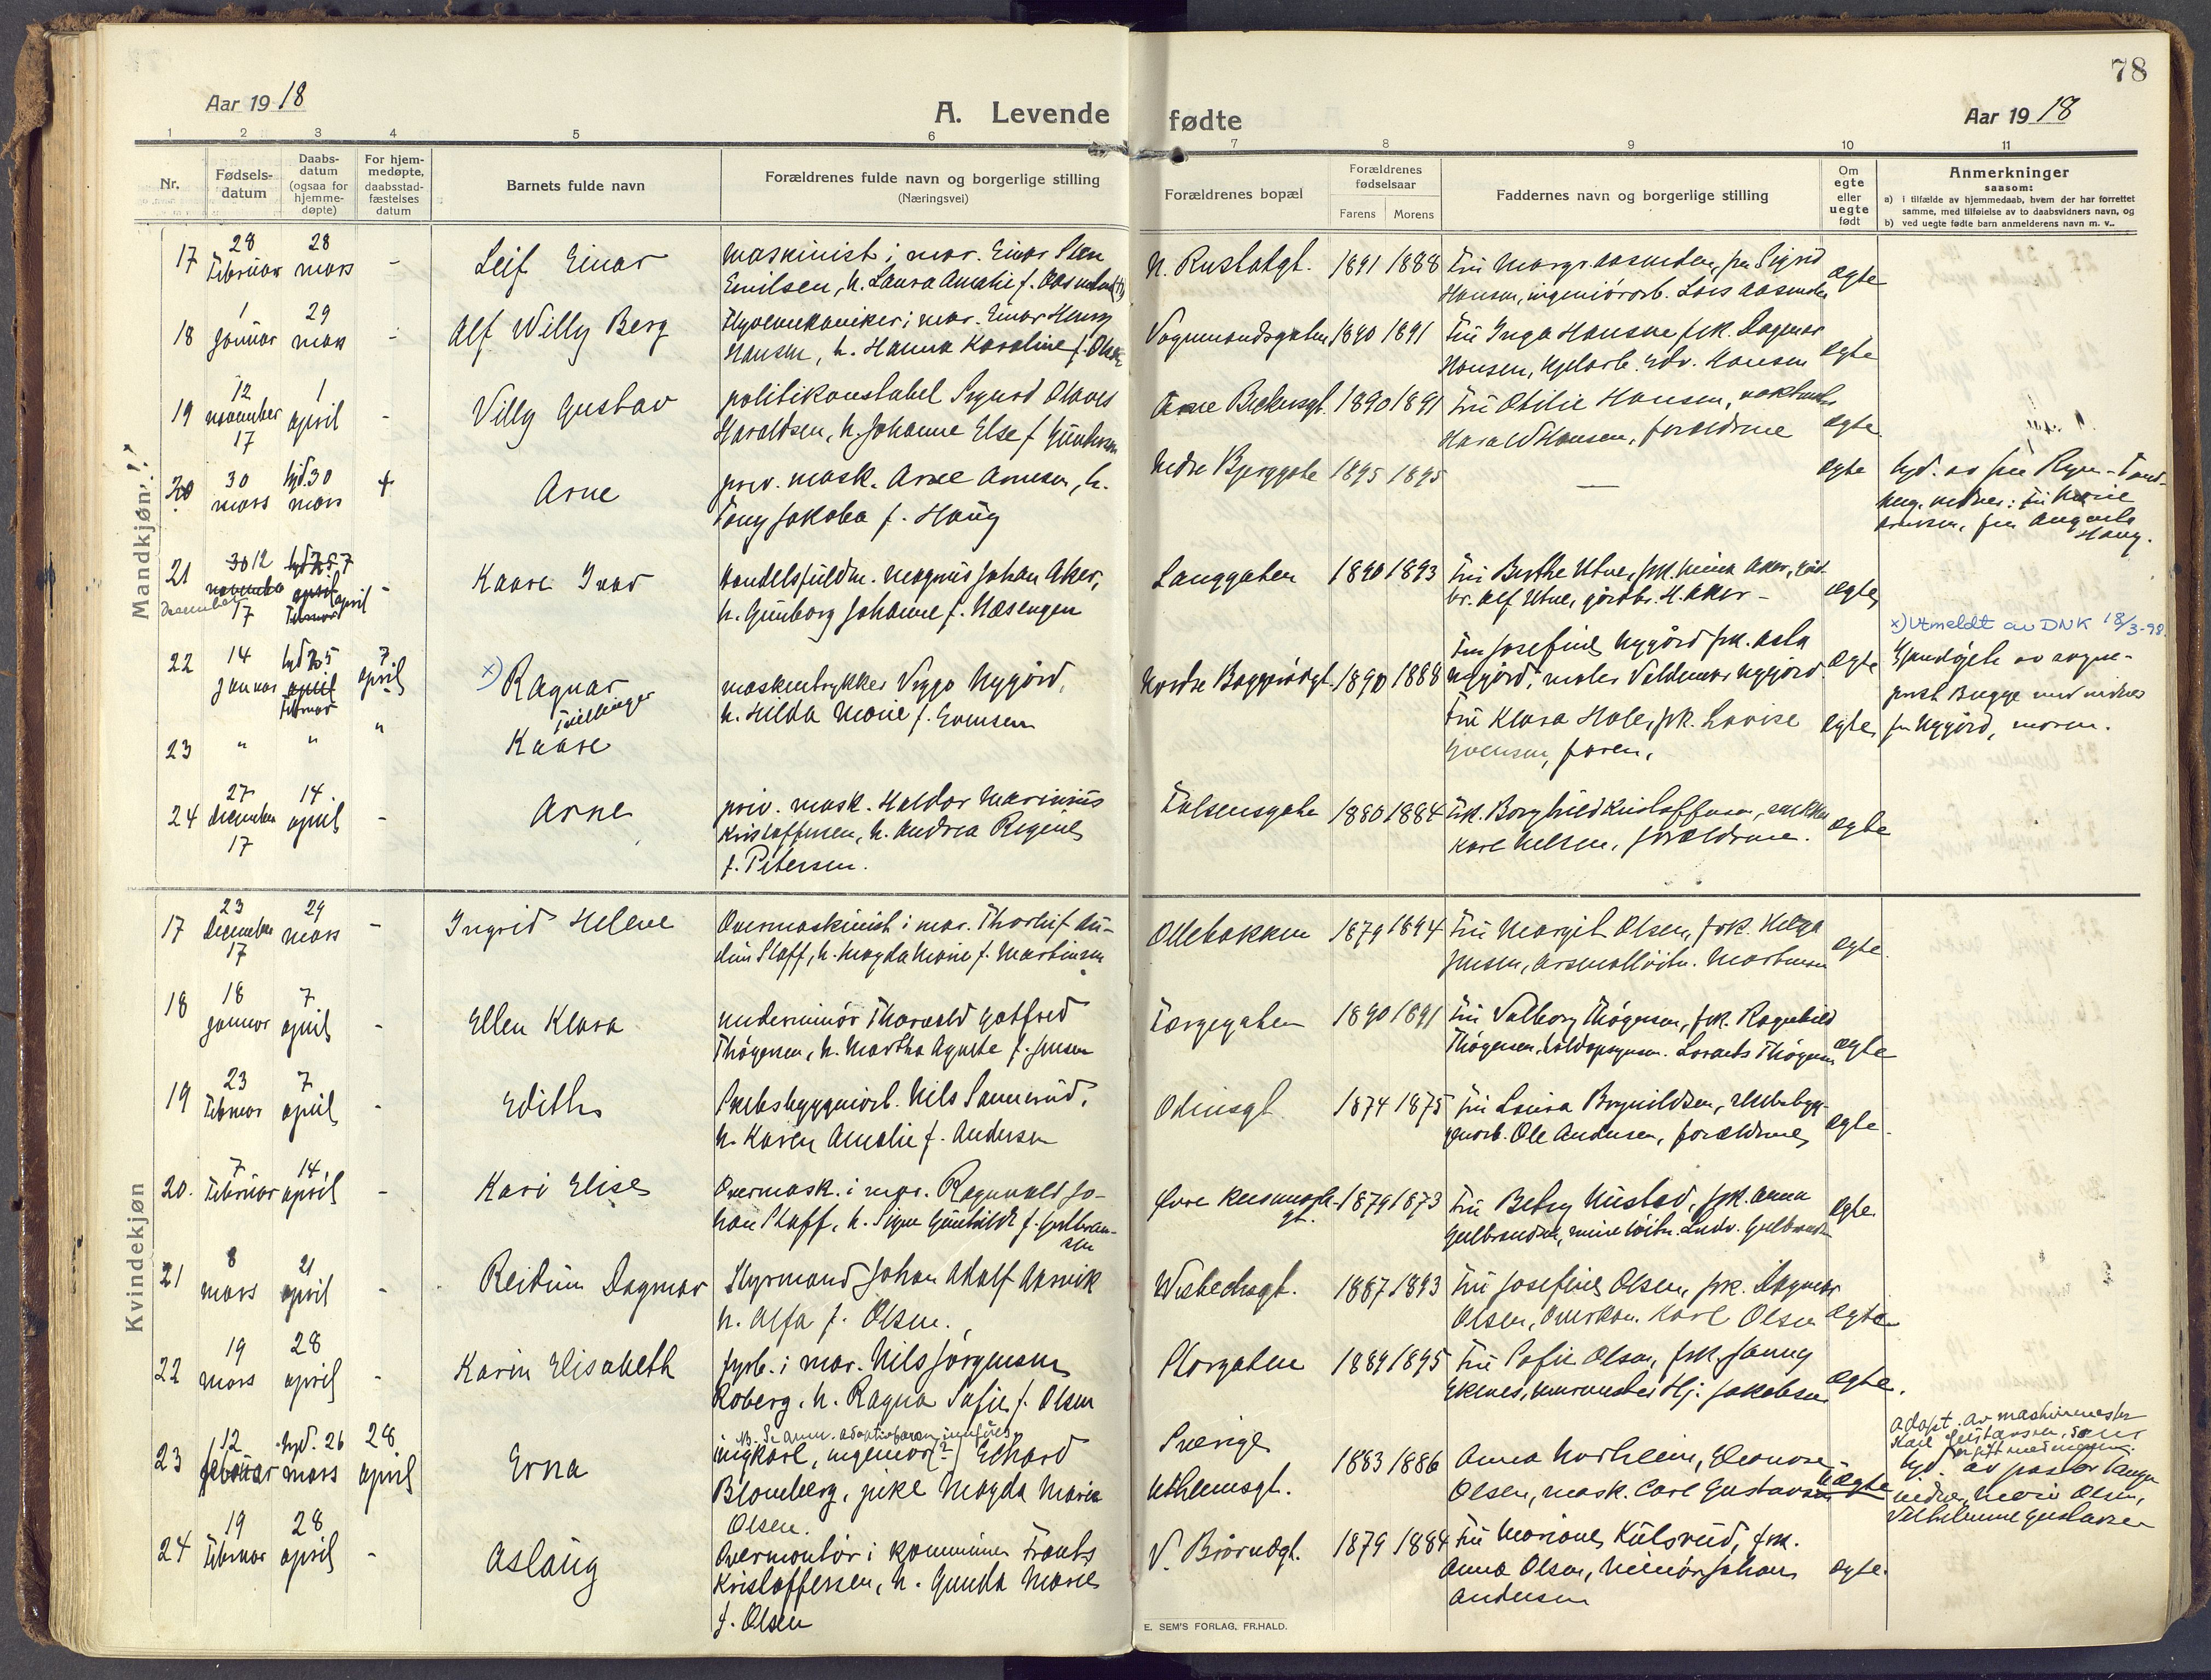 78
Aar 1918
A. Levende fødte
Aar 1918
1 2 3 4 5 6 7 8 9 10 11
Nr.
Fødsels-
datum
Daabs-
datum
(ogsaa for
hjemme-
døpte)
For hjem-
medøpte,
daabsstad-
fæstelses
datum
Barnets fulde navn
Forældrenes fulde navn og borgerlige stilling
(Næringsvei)
Forældrenes bopæl
Forældrenes
fødselsaar
Farens Morens
Faddernes navn og borgerlige stilling
Om
egte
eller
uegte
født
Anmerkninger
saasom:
a) i tilfælde av hjemmedaab, hvem der har forrettet
samme, med tilføielse av to daabsvidners navn, og
b) ved uegte fødte barn anmelderens navn m. v..
Mandkjøn!!
17 28 Februar 28 mars - Leif Einar
maskinist i mar. Einar
Emilsen, h. Laura Amalie f.
N. Rustadgt. 1891 1888
Hansen, ingeniörarb.
egte
18 1 Januar 29 mars - Alf Willy Berg
i mar. Einar Henry
Hansen, h. Hanna Karoline f. Olsen
Vognmandsgaten 1890 1891
Fru Inga Hansen frk. Dagmar
Hansen, Edv. Hansen
egte
19 12 november 17 1 april - Villy Gustav
politikonstabel Sigurd Olaves
Haraldsen, h. Johanne Else f.
1890 1891
Fru Otilie Hansen,
Harald Hansen, forældrene
egte.
20 30 mars hjd. 30 mars + Arne
prov. mask. Arne Arnesen, h.
Jakoba f. Haug
Nedre Bjerggate 1895 1895
—
egte
hjd. av fru
Fru Marie
fru
Haug.
21 30 12 november December 17 april 7 april - Kaare Ivar
Handelsfuldm. Magnus Johan Aker,
h. Gunborg Johanne f. Næsengen
Langgaten 1890 1893
Fru Berthe Utne, frk.
br. Alf Utne, gårdbr. H. Aker -
egte
22 14 Januar hjd. 5 april Februar 7 april x) Ragnar
Tvillinger
maskintrykker Viggo Nygård,
h. Hilda Marie f. Evensen
Nordre 1890 1888
Fru Josefine Nygård frk. Asta
Nygård, maler Valdemar Nygård
egte
x) Utmeldt av DNK 18/3-98.
Hjemdöpt av sogne-
prest Bugge med vidner
fru Nygård, moren.
23 " " " Kaare
Fru Klara Hole, frk. Lovise
Evensen, faren.
egte
24 27 December 17 14 april - Arne
prov. mask. Haldor Marinius
Kristoffersen, h. Andrea Regine
f. Petersen.
1880 1884
Frk. Borghild Kristoffersen,
Karl Nelsen, forældrene.
egte
Kvindekjøn
17 23 December 17 29 mars - Ingrid Helene
Overmaskinist i mar. Thorleif Au-
dun Staff, h. Magda Marie f. Martinsen
Ollebakken 1879 1894
Fru Margit Olsen, frk. Helga
Jensen, Martinsen
egte.
18 18 Januar 7 april - Ellen Klara
underminör Thorvald Gotfred
Thögersen, h. Martha Agnete f. Jensen
Færgegaten 1890 1891
Fru Valborg Thögersen, frk. Ragnhild
Thögersen, toldopsynsm. Thögersen
egte
19 23 Februar 7 april - Edith
Skibsbyggeriarb. Nils Sannerud,
h. Karen Amalie f. Andersen
Odinsgt. 1874 1875
Fru Laura Brynildsen, skibsbyg-
geriarb. Ole Andersen, forældrene
egte.
20. 7 Februar 14 april - Kari Elise
Overmask. i mar. Ragnvald Jo-
han Staff, h. Signe Gunhilde f. Gulbran-
sen
Øvre gt. 1879 1873
Fru Betsy Mustad, frk. Anna
Gulbrandsen, mineløitn. Ludv. Gulbrandsen
egte.
21 8 mars 21 april - Reidun Dagmar
Styrmand Johan Adolf Aarvik
h. Alfa f. Olsen.
1887 1893
Fru Josefine Olsen, frk. Dagmar
Olsen, Karl Olsen
egte
22 19 mars 28 april - Karin Elisabeth
fyrb. i mar. Nils Jörgensen
Roberg, h. Ragna Sofie f. Olsen
Storgaten 1889 1895
Fru Sofie Olsen, frk. Fanny
Ekenes, murmester Hj. Jakobsen
egte.
23 12 februar hjd. 26 mars 28 april Erna
NB. Se anm. adoptivbarn
ungkarl, ingeniör (?) Edvard
Blomberg, pike Magda Marie
Olsen.
Sverige
1883 1886
Anna Norheim, Eleonore
Olsen, mask. Carl Gustavsen
uegte
Adopt. av maskinmester
Karl Gustavsen, som
er gift med moren.
hjd. av pastor Lange
vidner, Marie Olsen,
Vilhelmine Gustavsen
24 19 Februar 28 april - Aslaug
Overmontör i kommunen Frants
Kristoffersen, h. Gunda Marie
f. Olsen
V. Björndgt. 1879 1884
Fru Mariane Kulsrud, frk.
Anna Olsen, Minör Johan
Andersen
egte.
E. SEM'S FORLAG, FR.HALD.